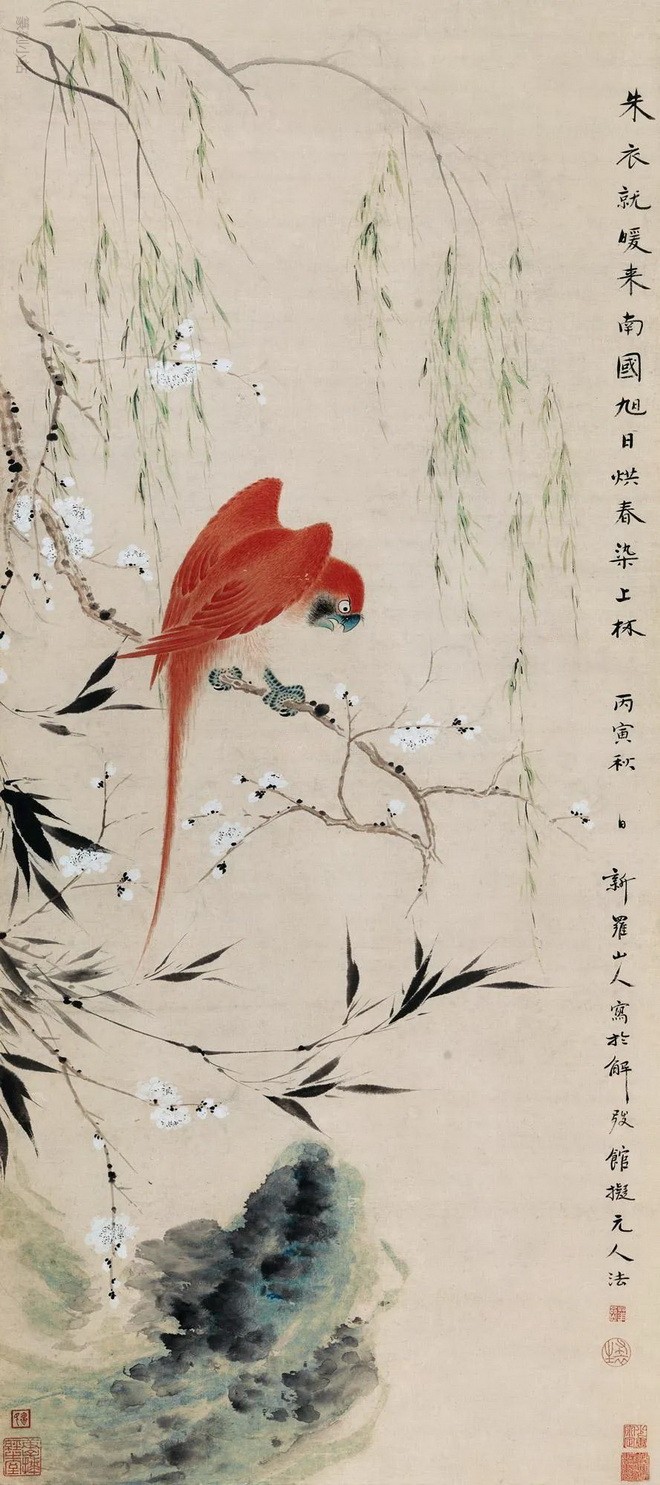 朱衣就暖来南國旭日烘春染上林 丙寅秋日 新羅山人寫於解弢館擬元人法